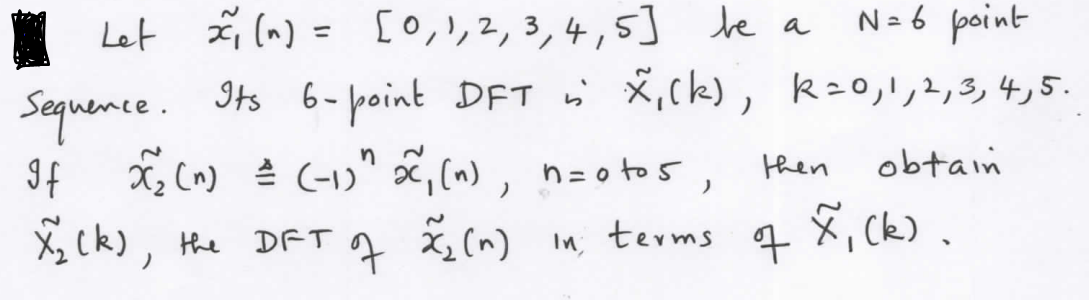 Let x̃₁(n) = [0,1,2,3,4,5] be a N=6 point
Sequence. Its 6-point DFT is X̃₁(k), k=0,1,2,3,4,5.
If x̃₂(n) ≜ (-1)ⁿ x̃₁(n), n=0 to 5, then obtain
X̃₂(k), the DFT of x̃₂(n) in terms of X̃₁(k).